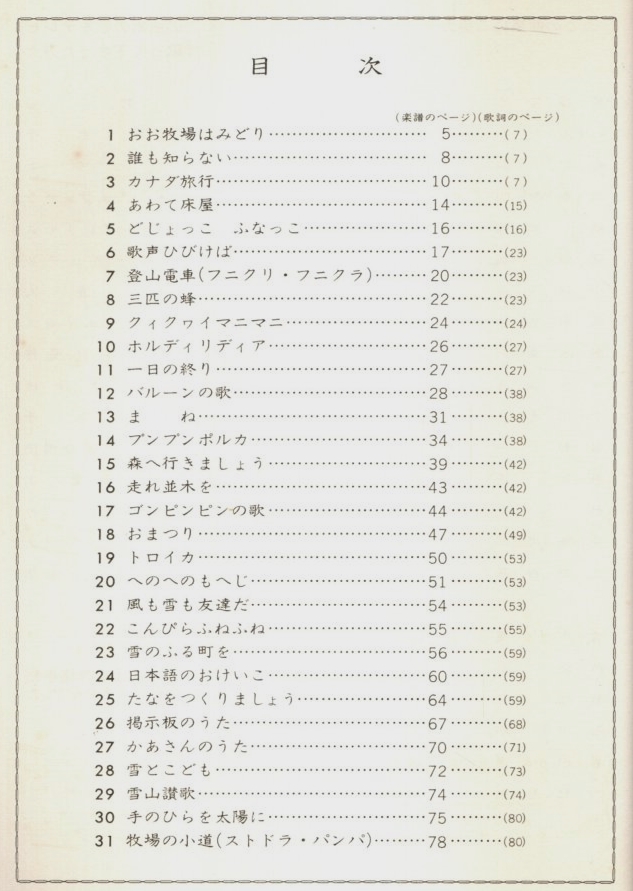 目　次
(楽譜のページ)(歌詞のページ)
1 おお牧場はみどり………………………… 5………(7)
2 誰も知らない………………………… 8………(7)
3 カナダ旅行…………………………10………(7)
4 あわて床屋…………………………14………(15)
5 どじょっこ　ふなっこ………………16………(16)
6 歌声ひびけば………………………17………(23)
7 登山電車(フニクリ・フニクラ)………20………(23)
8 三匹の蜂…………………………22………(23)
9 クィクヮイマニマニ…………………24………(24)
10 ホルディリディア……………………26………(27)
11 一日の終り…………………………27………(27)
12 バルーンの歌………………………28………(38)
13 ま　　ね…………………………31………(38)
14 ブンブンポルカ……………………34………(38)
15 森へ行きましょう……………………39………(42)
16 走れ並木を…………………………43………(42)
17 ゴンピンピンの歌……………………44………(42)
18 おまつり…………………………47………(49)
19 トロイカ…………………………50………(53)
20 へのへのもへじ……………………51………(53)
21 風も雪も友達だ……………………54………(53)
22 こんぴらふねふね……………………55………(55)
23 雪のふる町を………………………56………(59)
24 日本語のおけいこ……………………60………(59)
25 たなをつくりましょう…………………64………(59)
26 掲示板のうた………………………67………(68)
27 かあさんのうた……………………70………(71)
28 雪とこども…………………………72………(73)
29 雪山讃歌…………………………74………(74)
30 手のひらを太陽に……………………75………(80)
31 牧場の小道(ストドラ・パンパ)………78………(80)